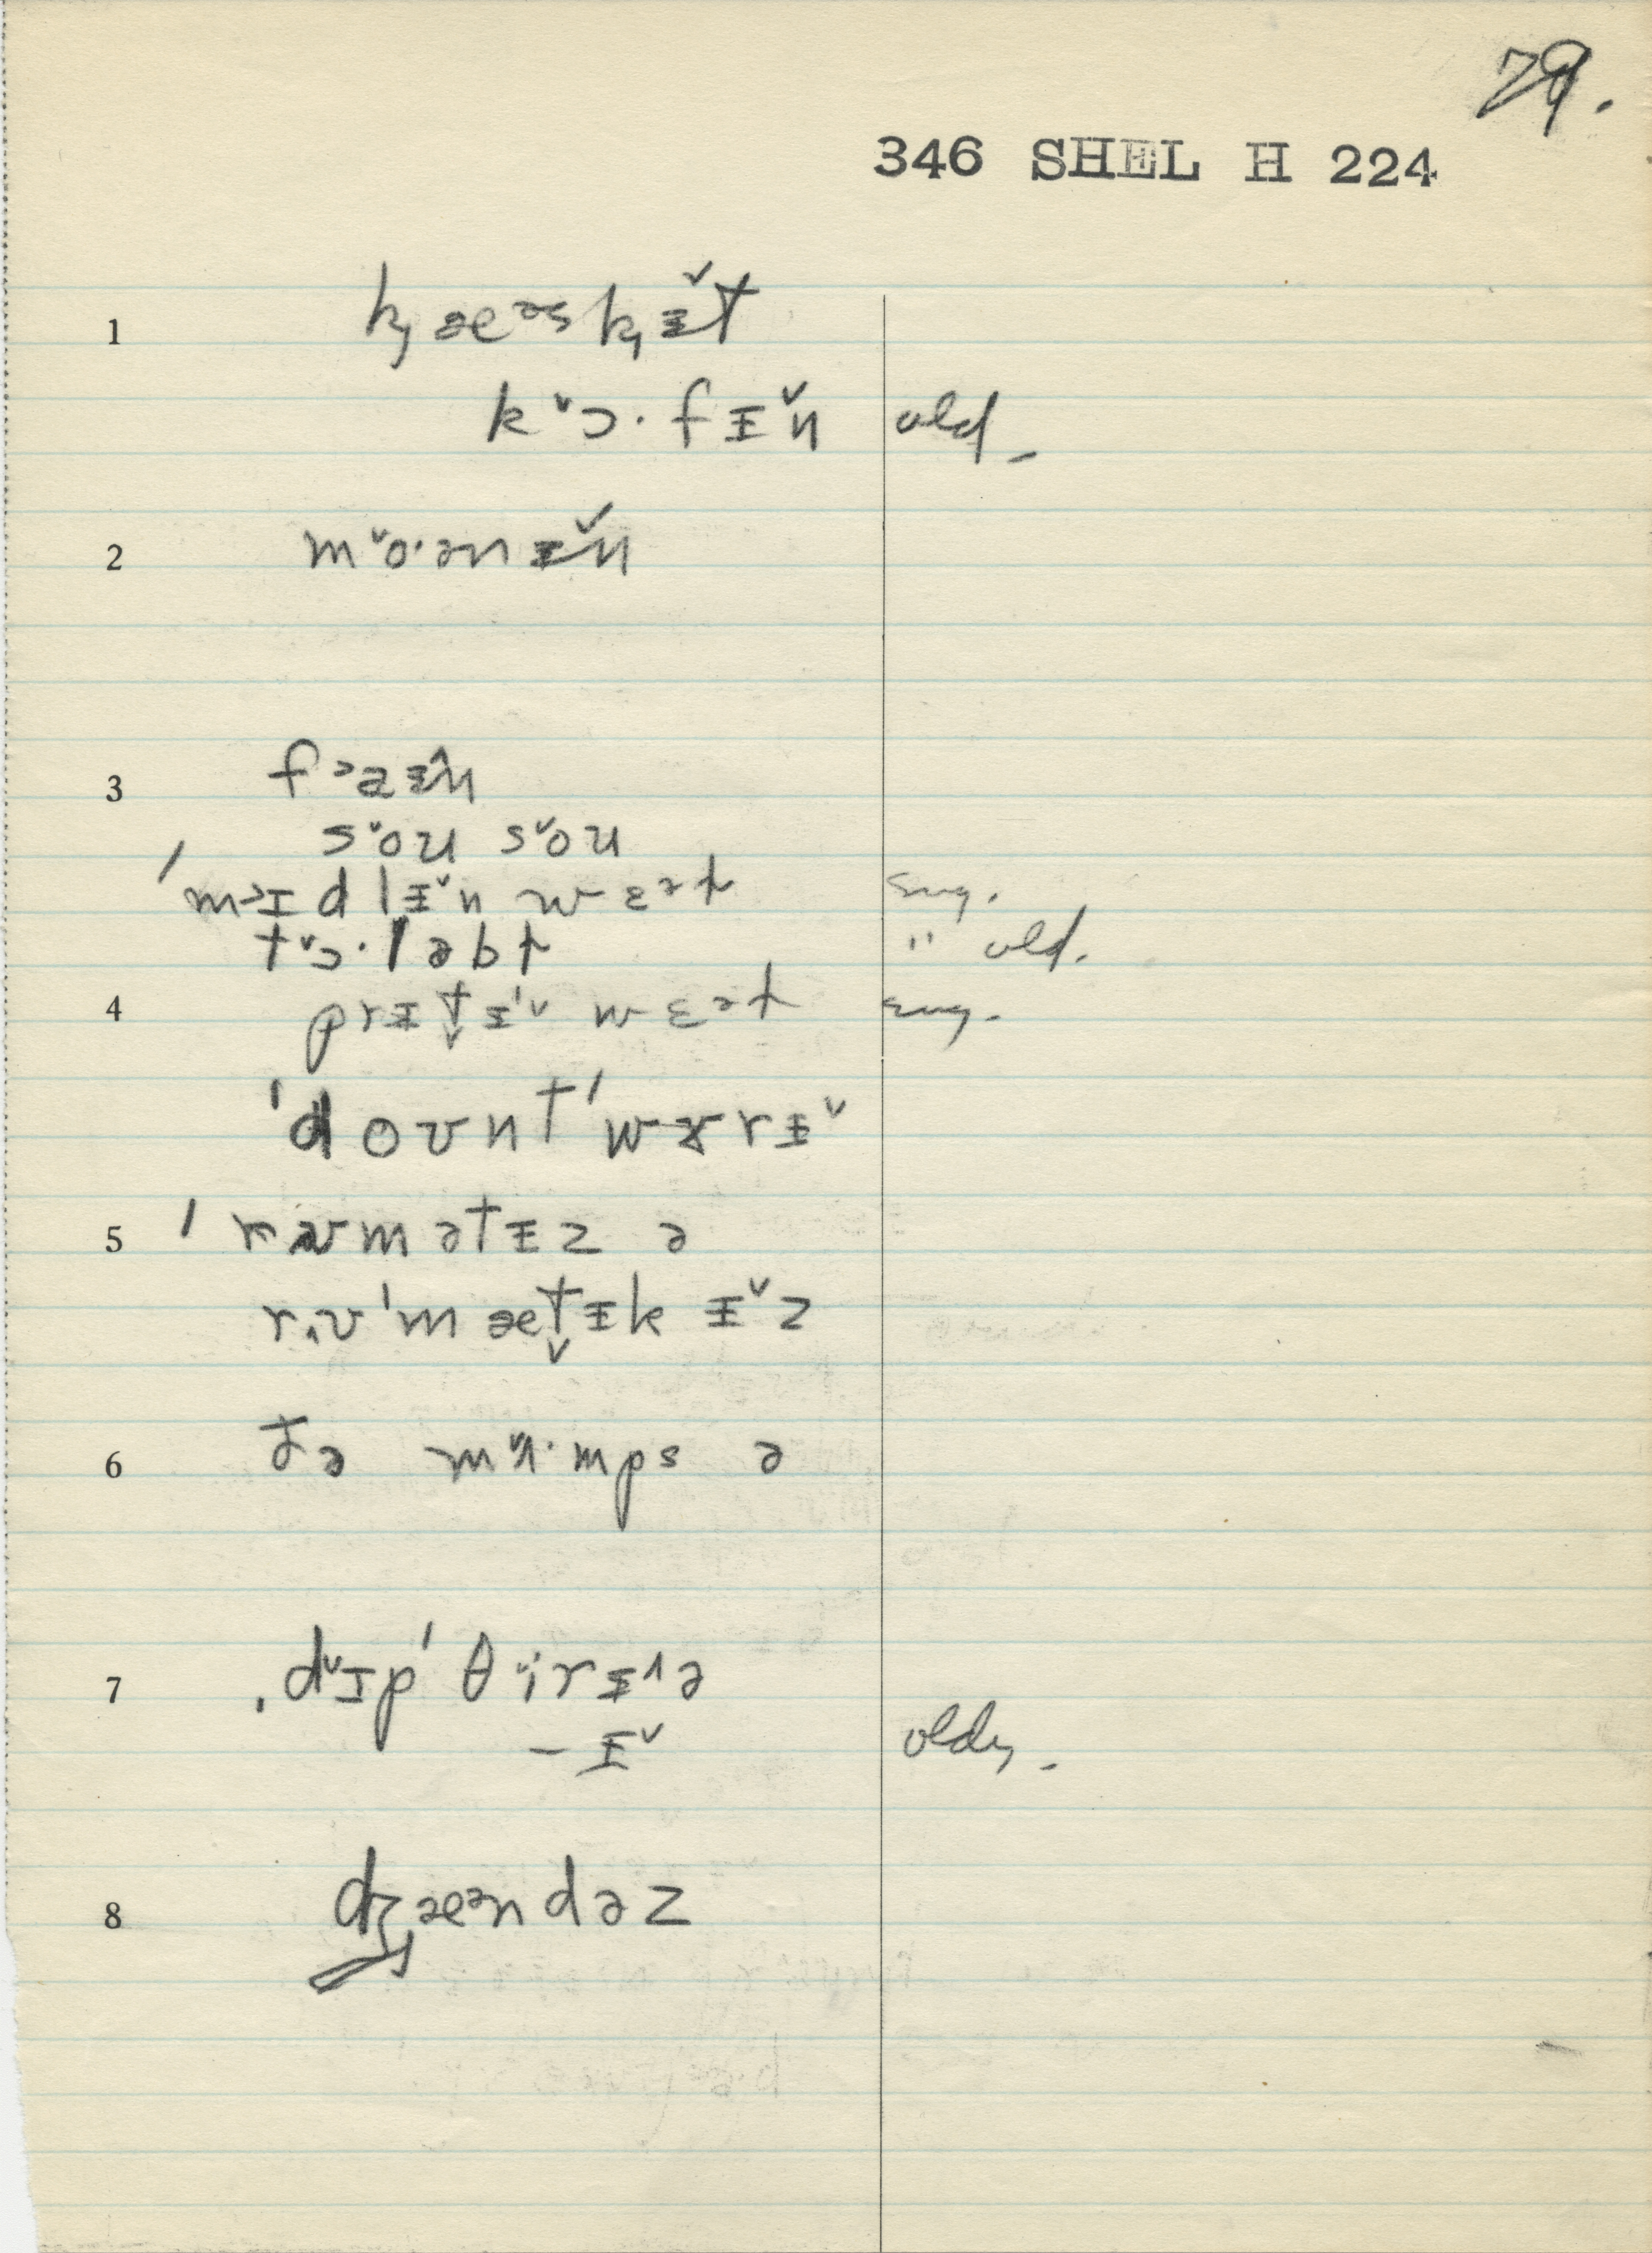 79.
346 SHEL H 224
1 k̡æᵊsk̡ɪ̵̌t
k ˇɔ· f ɪ̵ˇn old -
2 mˇo·ənɪ̵ˇn
3 fᵊaɪ̵̂n
sˇou sˇou
ˈm˃ɪdlɪ̵ˇn wɛət eng.
tˇɔ·ləbt " old.
4 prɪ̵t̬ɪ̵ˈˇ wɛət eng.
ˈdoʊntˈwɤrɪ̵ˇ
5 ˈrʊmətɪ̵z ə
r.ʊˈmæt̬ɪ̵k ɪ̵ˇz
6 ðə mˇʌ·mps ə
7 ˌdˇɪpˈθˇirɪ̵^ə
-ɪ̵ˇ old,
8 dʒæᵊndəz